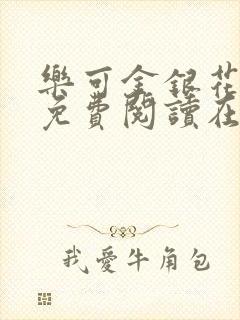 樂可金銀花
免費閱讀在
我愛牛角包